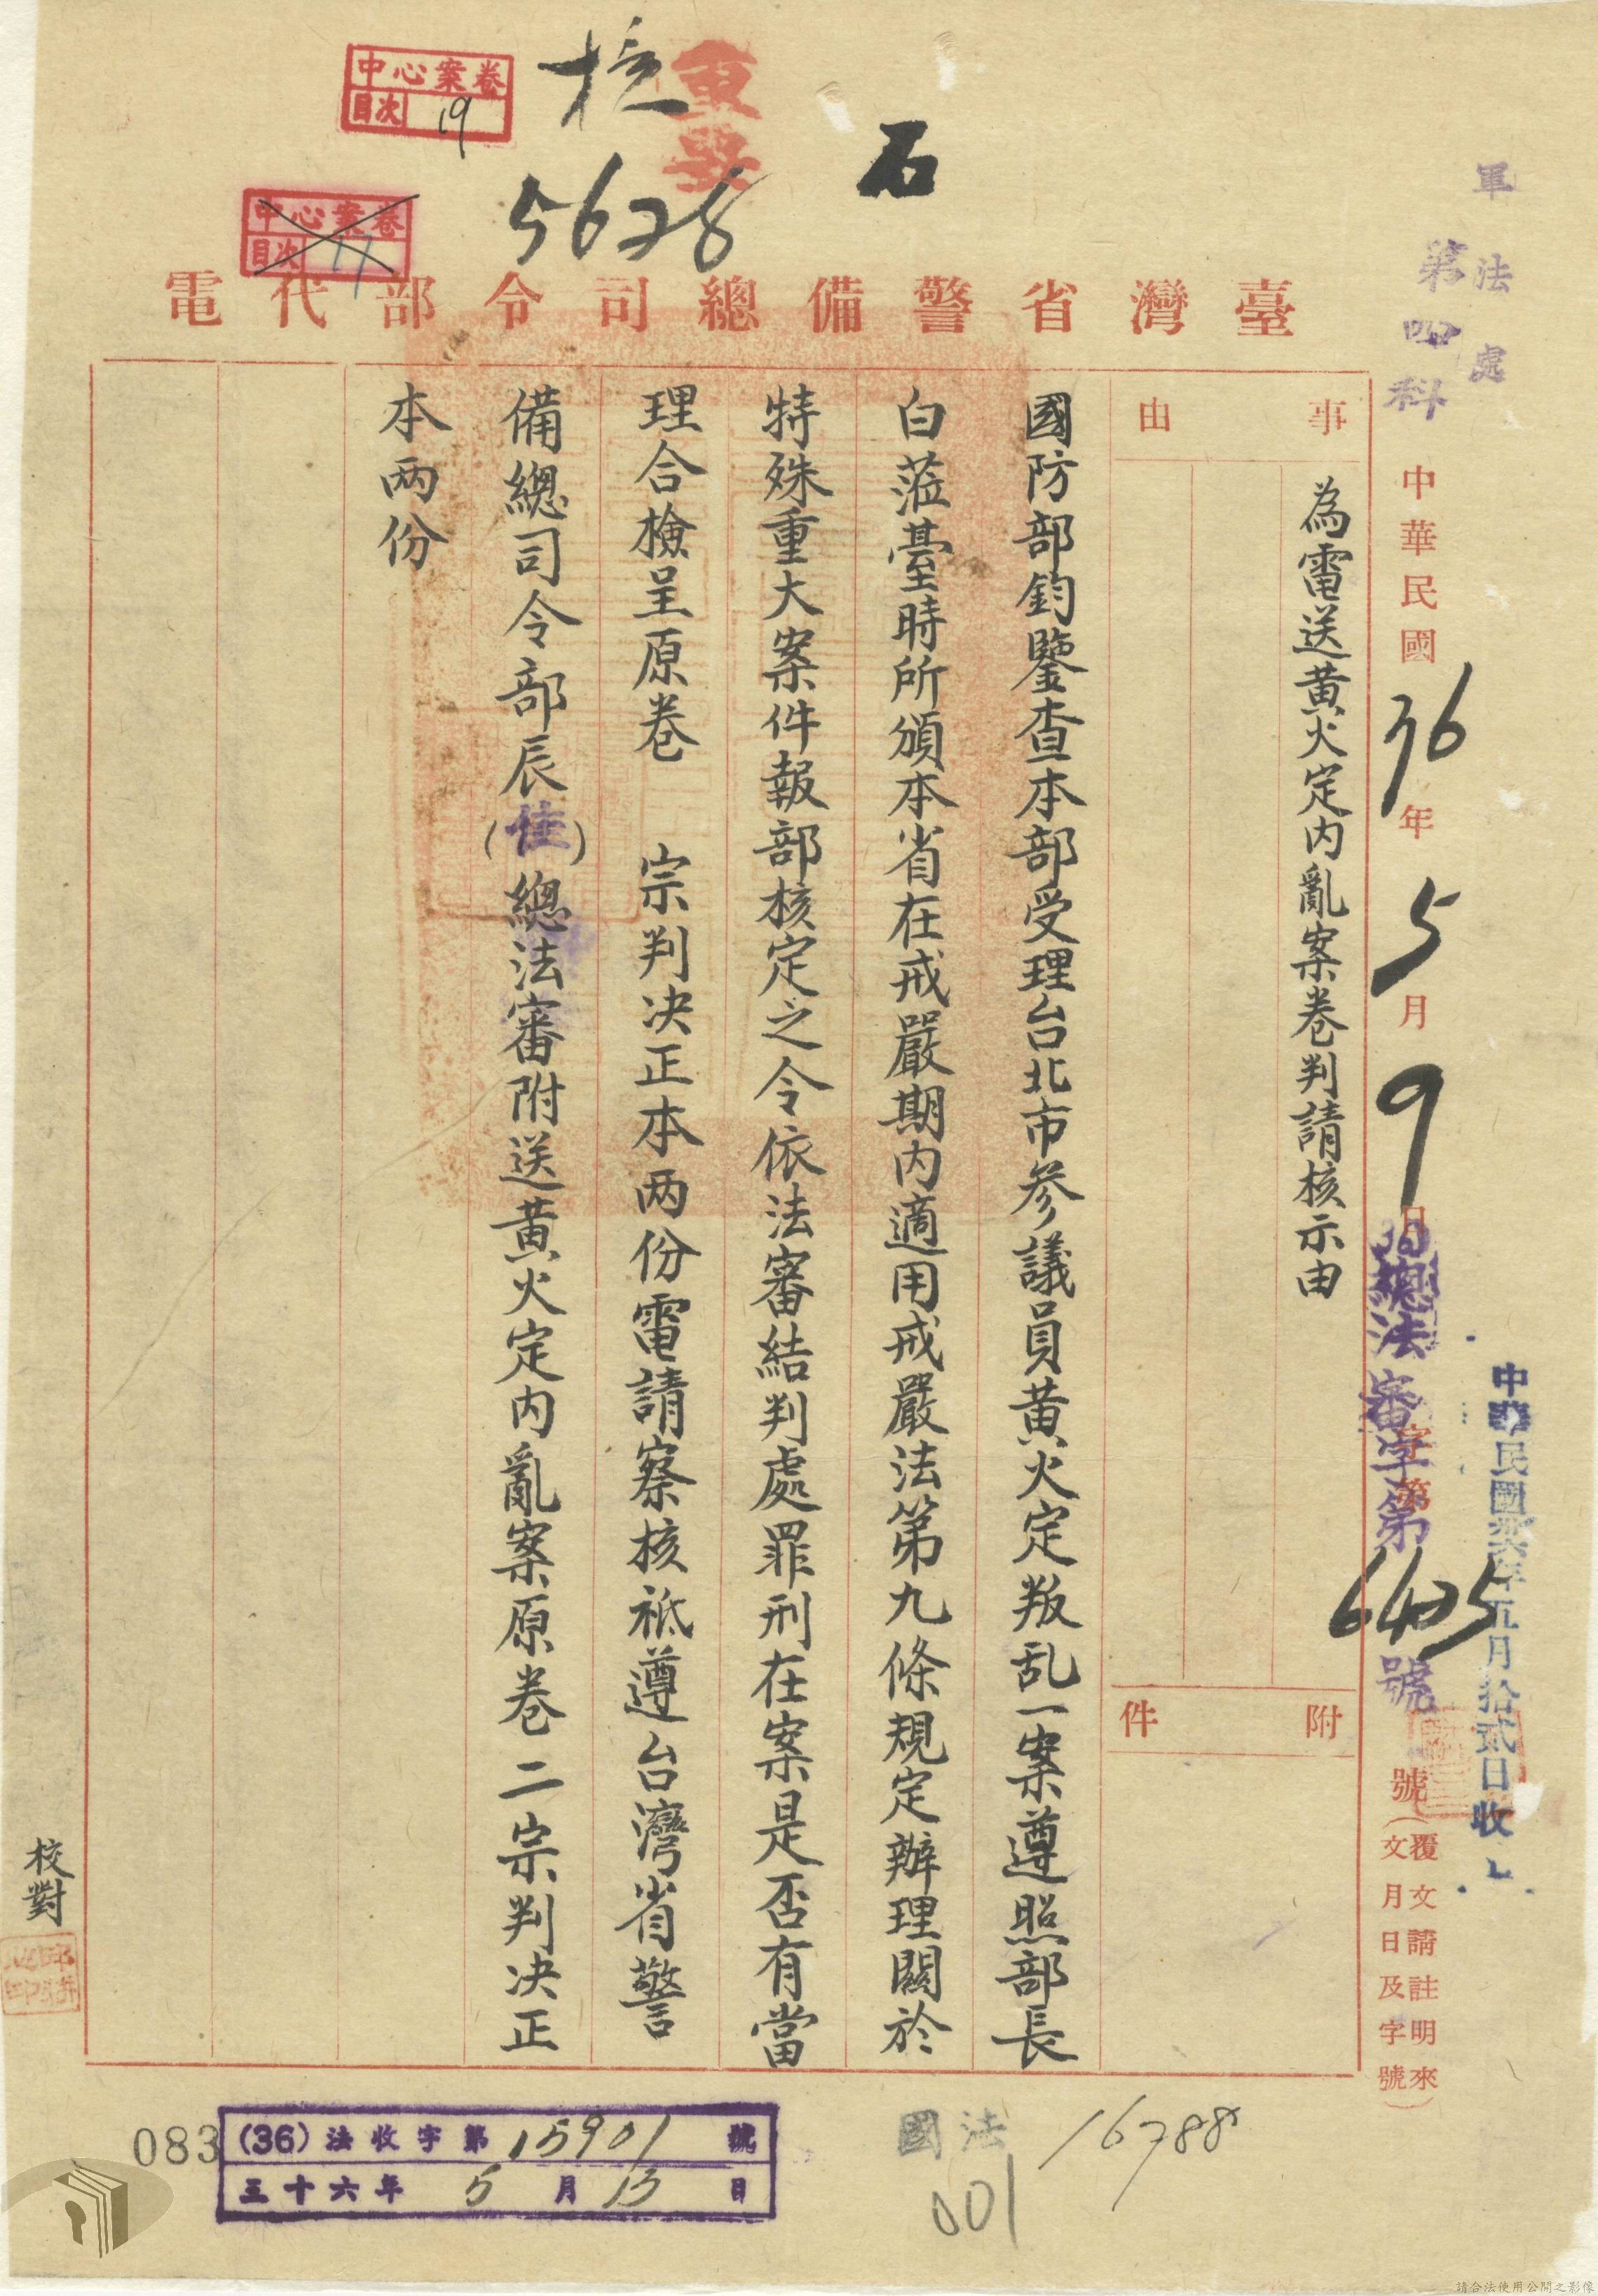 中心案卷
目次 19
核
重要
石
中心案卷
目次 17
5628
臺灣省警備總司令部代電
軍法處
第四科
中華民國36年5月9日
總法審字第6425號
字第
號(覆文請註明來文月日及字號)
中華民國卅六年五月拾貳日收
事由
為電送黃火定內亂案卷判請核示由
附件
國防部鈞鑒查本部受理台北市參議員黃火定叛乱一案遵照部長
白蒞臺時所頒本省在戒嚴期內適用戒嚴法第九條規定辦理關於
特殊重大案件報部核定之令依法審結判處罪刑在案是否有當
理合檢呈原卷 宗判決正本两份電請察核祗遵台灣省警
備總司令部辰(佳)總法審附送黃火定內亂案原卷二宗判决正
本两份
校對
083
(36)法收字第15901號
三十六年5月13日
國法
001
16788
請合法使用公開之影像